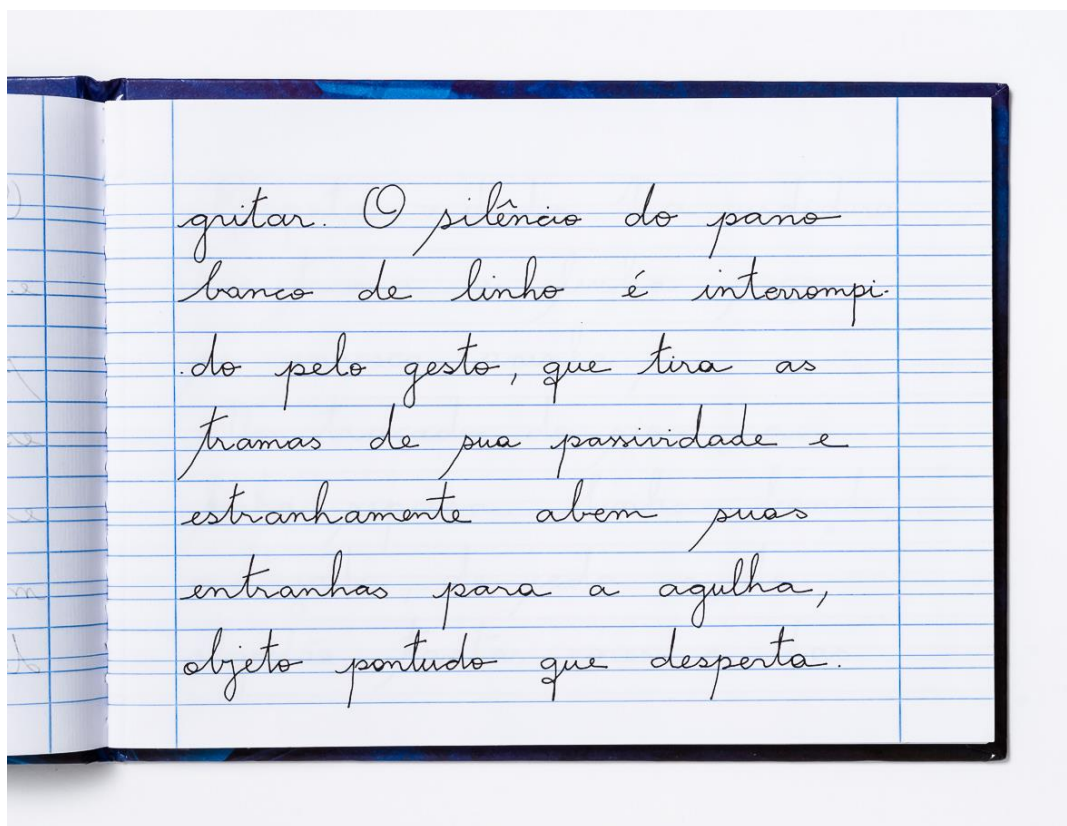 gritar. O silêncio do pano
banco de linho é interrompi-
-do pelo gesto, que tira as
tramas de sua passividade e
estranhamente abem suas
entranhas para a agulha,
objeto pontudo que desperta.